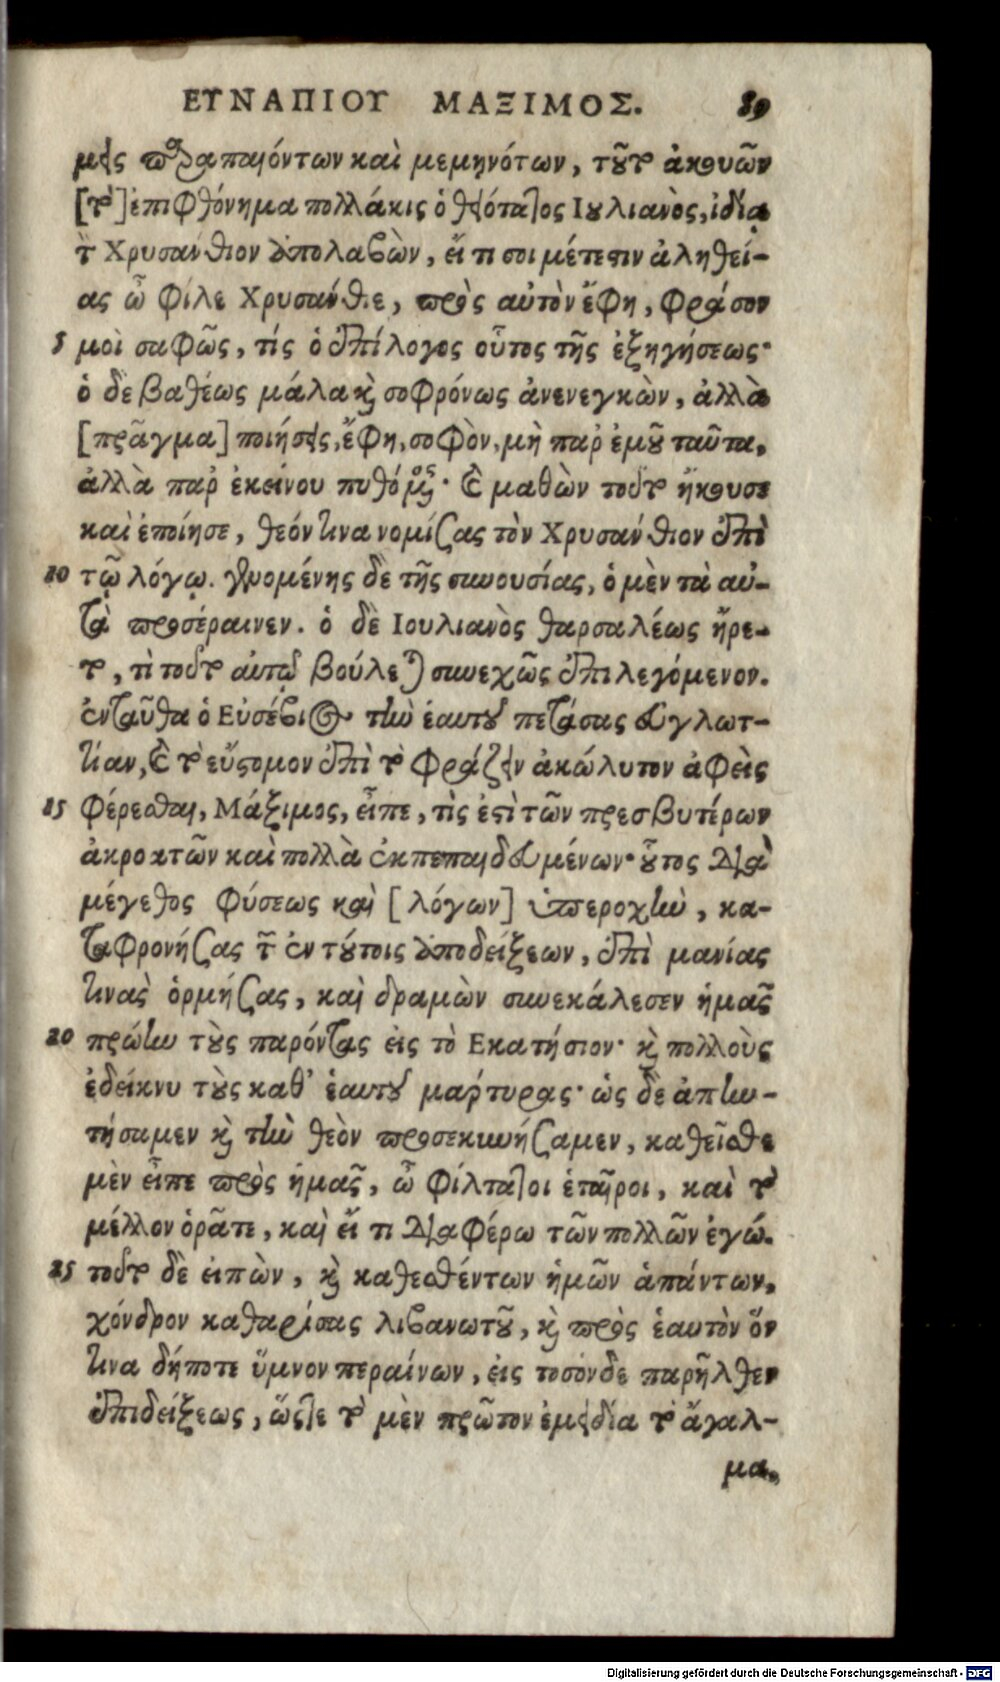 ΕΥΝΑΠΙΟΥ ΜΑΞΙΜΟΣ. 89
μεις παραπαιόντων καὶ μεμηνότων, τοῦτο ἀκουῶν
[τὸ] ἐπιφθόνημα πολλάκις ὁ θειότατος Ιουλιανὸς, ἰδίᾳ
τὸν Χρυσάνθιον ἀπολαβὼν, εἴ τι σοι μέτεστιν ἀληθεί-
ας ὦ φίλε Χρυσάνθιε, πρὸς αὐτὸν ἔφη, φράσον
5 μοὶ σαφῶς, τίς ὁ ἐπίλογος οὗτος τῆς ἐξηγήσεως·
ὁ δὲ βαθέως μάλα καὶ σοφρόνως ἀνενεγκὼν, ἀλλὰ
[πρᾶγμα] ποιήσεις, ἔφη, σοφὸν, μὴ παρ' ἐμοῦ ταῦτα,
ἀλλὰ παρ' ἐκείνου πυθόμενος· καὶ μαθὼν τοῦτο ἤκουσε
καὶ ἐποίησε, θεόν τινα νομίσας τὸν Χρυσάνθιον ἐπὶ
10 τῷ λόγῳ. γενομένης δὲ τῆς συνουσίας, ὁ μὲν τὰ αὐ-
τὰ προσέραινεν. ὁ δὲ Ιουλιανὸς θαρσαλέως ἤρε-
το, τὶ τοῦτο αὐτῷ βούλεται συνεχῶς ἐπιλεγόμενον.
ἐνταῦθα ὁ Εὐσέβιος τὴν ἑαυτοῦ πετάσας εὐγλωτ-
τίαν, καὶ τὸ εὔστομον ἐπὶ τὸ φράζειν ἀκώλυτον ἀφεὶς
15 φέρεσθαι, Μάξιμος, εἶπε, τὶς ἐστὶ τῶν πρεσβυτέρων
ἀκροατῶν καὶ πολλὰ ἐκπεπαιδευμένων· οὗτος διὰ
μέγεθος φύσεως καὶ [λόγων] ὑπεροχὴν, κα-
ταφρονήσας τῶν ἐν τούτοις ἀποδείξεων, ἐπὶ μανίας
τινὰς ὁρμήσας, καὶ δραμὼν συνεκάλεσεν ἡμᾶς
20 πρώην τοὺς παρόντας εἰς τὸ Εκατήσιον· καὶ πολλοὺς
ἐδείκνυ τοὺς καθ' ἑαυτοῦ μάρτυρας· ὡς δὲ ἀπην-
τήσαμεν καὶ τὴν θεὸν προσεκυνήσαμεν, καθεῖσθε
μὲν εἶπε πρὸς ἡμᾶς, ὦ φίλτατοι ἑταῖροι, καὶ τὸ
μέλλον ὁρᾶτε, καὶ εἴ τι διαφέρω τῶν πολλῶν ἐγώ.
25 τοῦτο δὲ εἰπὼν, καὶ καθεσθέντων ἡμῶν ἁπάντων,
χόνδρον καθαρίσας λιβανωτοῦ, καὶ πρὸς ἑαυτὸν ὅν
τινα δήποτε ὕμνον περαίνων, εἰς τοσόνδε παρῆλθεν
ἐπιδείξεως, ὥστε τὸ μὲν πρῶτον ἐμειδία τὸ ἄγαλ-
μα,
Digitalisierung gefördert durch die Deutsche Forschungsgemeinschaft - DFG